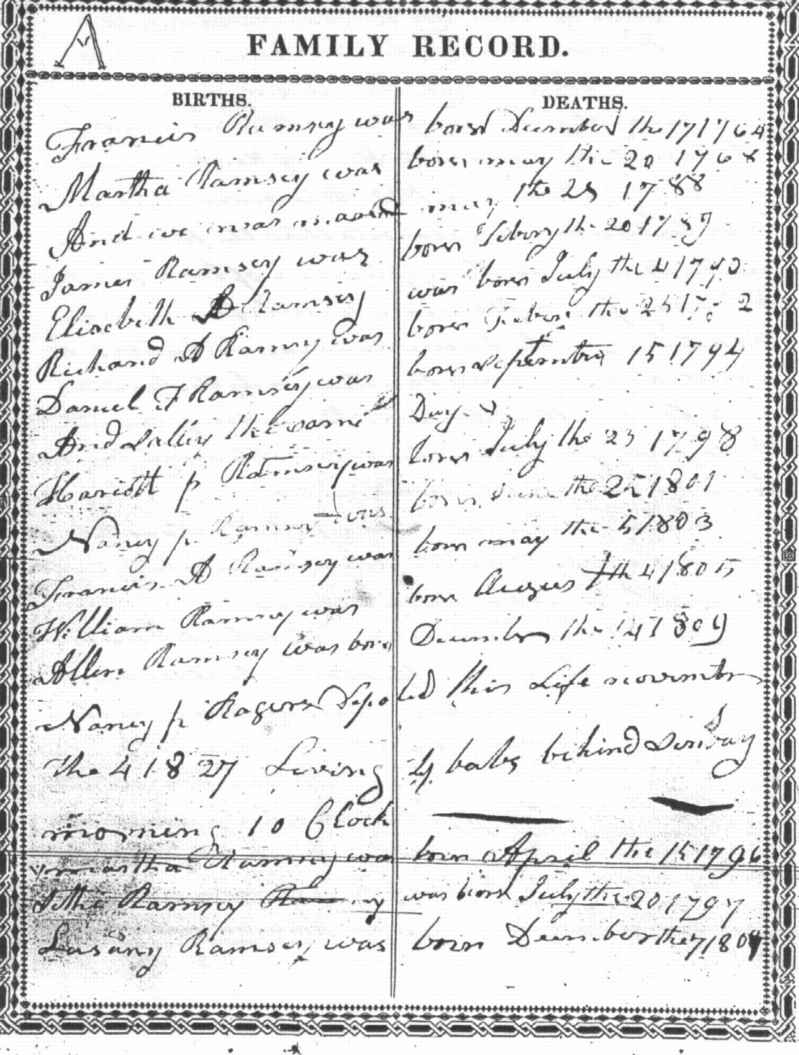 A
FAMILY RECORD.
BIRTHS. DEATHS.
Francis Ramsey was born December the 17 1764
Martha Ramsey was born may the 20 1768
And we was maared may the 25 1788
James Ramsey was born the 20 1789
Elisebeth Ramsey was born July the 4 1790
Richard A Ramsey was born the 25
Daniel F Ramsey was born September 15 1794
And Salley the same Day
Hariott p Ramsey was born July the 23 1798
Nancy p Ramsey was born June the 25 1801
Francis A Ramsey was born may the 5 1803
William Ramsey was born August the 4 1805
Allen Ramsey was born December the 14 1809
Nancy p Rogers Depo ted this Life novembr
the 4 1827 Living 4 babs behind Sunday
morning 10 Clock
martha Ramsey was born April the 15 1796
Ramsey was born July the 20 1797
Ramsey was born December the 7 180